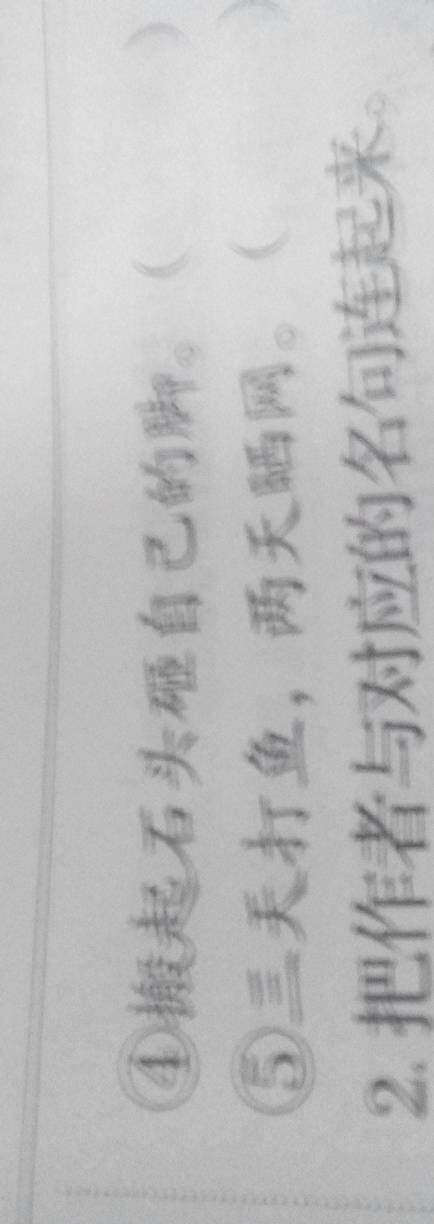 ④搬起石头砸自己的脚。（ ）
⑤三天打鱼，两天晒网。（ ）
2. 把作者与对应的名句连起来。